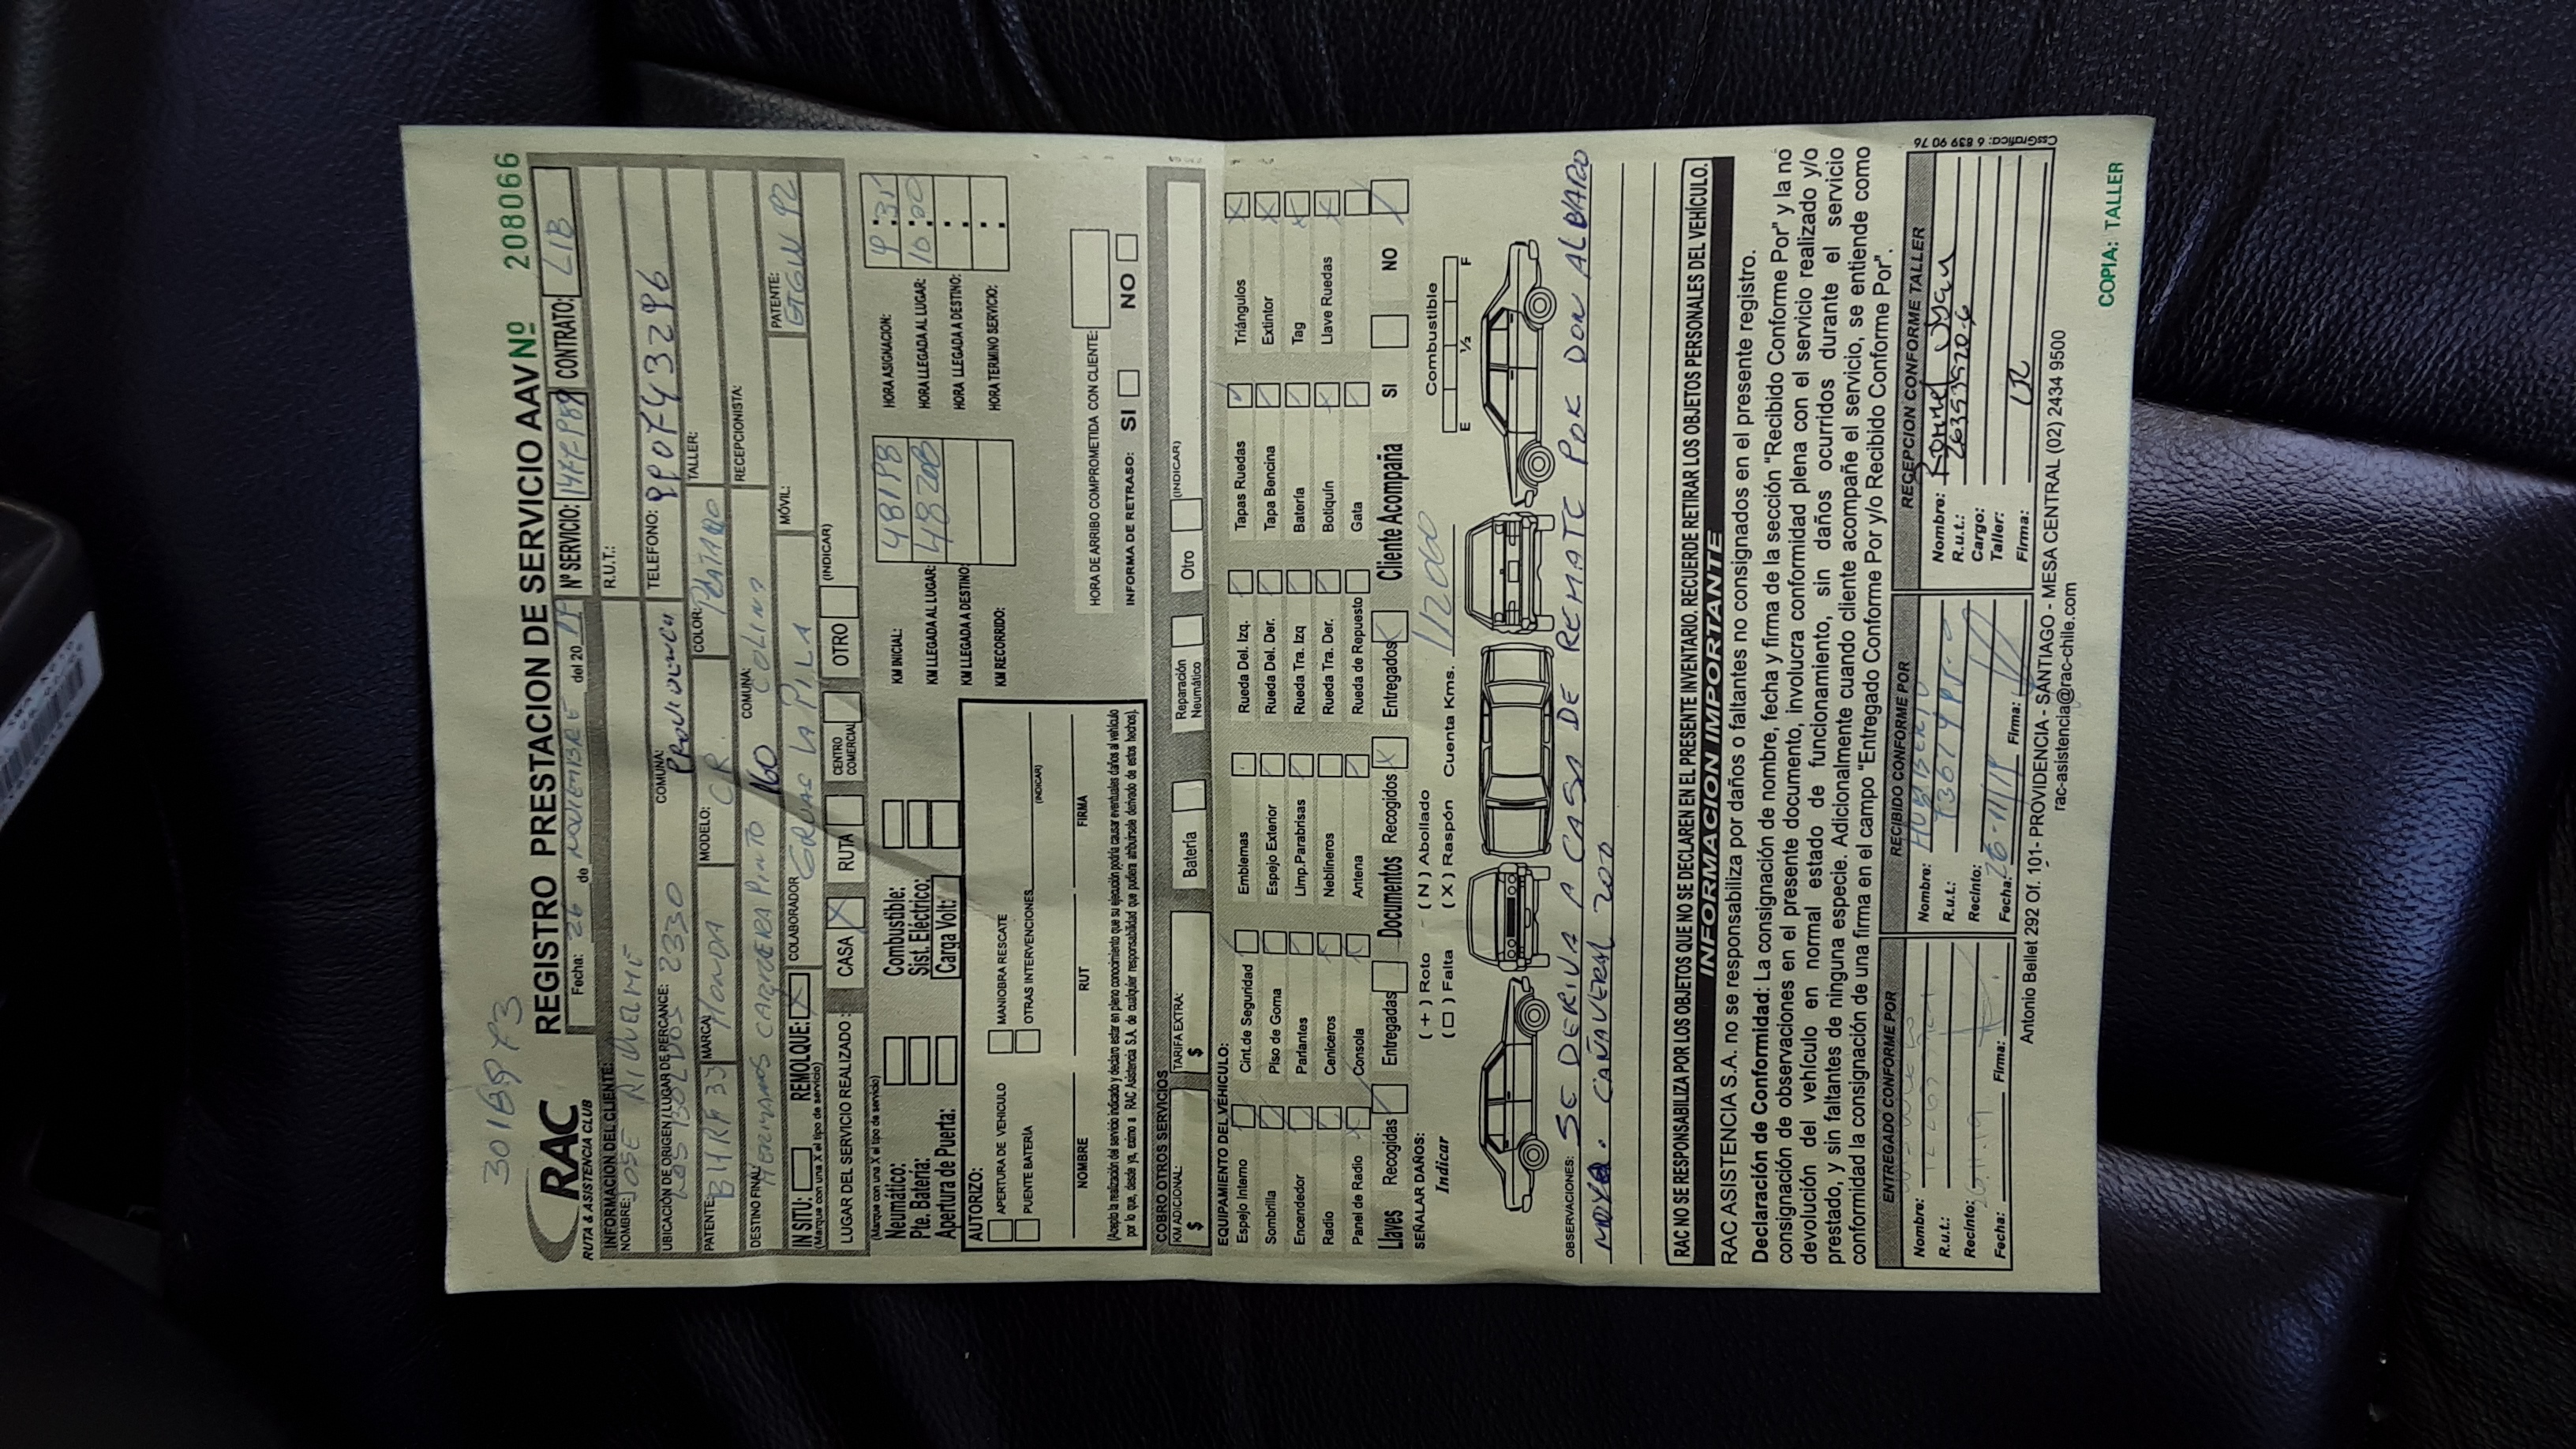 3016973
RAC
RUTA & ASISTENCIA CLUB
REGISTRO PRESTACION DE SERVICIO AAV Nº 208066
Fecha: 26 de NOVIEMBRE del 2019 Nº SERVICIO: CONTRATO: LIB
INFORMACION DEL CLIENTE:
NOMBRE: JOSE RIQUELME R.U.T.:
UBICACIÓN DE ORIGEN / LUGAR DE PERCANCE: LOS BOLDOS 2330 COMUNA: PROVIDENCIA TELEFONO:
PATENTE: MARCA: HONDA MODELO: CR. COLOR: PLATEADO TALLER:
DESTINO FINAL: HERMANOS CARRERA PINTO 160 COMUNA: COLINA RECEPCIONISTA:
IN SITU: REMOLQUE: X COLABORADOR GRUAS LA PILA MÓVIL: PATENTE: GTGW 92
(Marque con una X el tipo de servicio)
LUGAR DEL SERVICIO REALIZADO : CASA X RUTA CENTRO COMERCIAL OTRO (INDICAR)
(Marque con una X el tipo de servicio)
Neumático: Combustible: KM INICIAL: 48198 HORA ASIGNACION: 9:35
Pte. Batería: Sist. Eléctrico: KM LLEGADA AL LUGAR: 48208 HORA LLEGADA AL LUGAR: 10:00
Apertura de Puerta: Carga Volt: KM LLEGADA A DESTINO: HORA LLEGADA A DESTINO:
KM RECORRIDO: HORA TERMINO SERVICIO:
AUTORIZO:
APERTURA DE VEHICULO MANIOBRA RESCATE
PUENTE BATERÍA OTRAS INTERVENCIONES (INDICAR)
NOMBRE RUT FIRMA
(Acepto la realización del servicio indicado y declaro estar en pleno conocimiento que su ejecución podría causar eventuales daños al vehículo
por lo que, desde ya, eximo a RAC Asistencia S.A. de cualquier responsabilidad que pudiera atribuírsele derivado de estos hechos).
HORA DE ARRIBO COMPROMETIDA CON CLIENTE:
INFORMA DE RETRASO: SI NO
COBRO OTROS SERVICIOS
KM ADICIONAL: $ TARIFA EXTRA: $ Batería Reparación Neumático Otro (INDICAR)
EQUIPAMIENTO DEL VEHICULO:
Espejo Interno Cint.de Seguridad Emblemas Rueda Del. Izq. Tapas Ruedas Triángulos X
Sombrilla Piso de Goma Espejo Exterior Rueda Del. Der. Tapa Bencina Extintor X
Encendedor Parlantes Limp.Parabrisas Rueda Tra. Izq Batería Tag X
Radio Ceniceros Neblineros Rueda Tra. Der. Botiquín Llave Ruedas X
Panel de Radio Consola Antena Rueda de Repuesto Gata
Llaves Recogidas Entregadas Documentos Recogidos X Entregados Cliente Acompaña SI NO
SEÑALAR DAÑOS: ( + ) Roto ( N ) Abollado
Indicar ( □ ) Falta ( X ) Raspón Cuenta Kms. 112000 Combustible
E ½ F
OBSERVACIONES: SE DERIVA A CASA DE REMATE POR DON ALVARO
MOYA. CAÑAVERAL 200
RAC NO SE RESPONSABILIZA POR LOS OBJETOS QUE NO SE DECLAREN EN EL PRESENTE INVENTARIO. RECUERDE RETIRAR LOS OBJETOS PERSONALES DEL VEHÍCULO.
INFORMACION IMPORTANTE
RAC ASISTENCIA S.A. no se responsabiliza por daños o faltantes no consignados en el presente registro.
Declaración de Conformidad: La consignación de nombre, fecha y firma de la sección "Recibido Conforme Por" y la no
consignación de observaciones en el presente documento, involucra conformidad plena con el servicio realizado y/o
devolución del vehículo en normal estado de funcionamiento, sin daños ocurridos durante el servicio
prestado, y sin faltantes de ninguna especie. Adicionalmente cuando cliente acompañe el servicio, se entiende como
conformidad la consignación de una firma en el campo "Entregado Conforme Por y/o Recibido Conforme Por".
ENTREGADO CONFORME POR RECIBIDO CONFORME POR RECEPCION CONFORME TALLER
Nombre: Nombre: HUMBERTO Nombre:
R.u.t.: R.u.t.: R.u.t.: 26353920-6
Recinto: Recinto: Cargo:
Taller:
Fecha: Firma: Fecha: 26-11-19 Firma: Firma:
Antonio Bellet 292 Of. 101- PROVIDENCIA - SANTIAGO - MESA CENTRAL (02) 2434 9500
rac-asistencia@rac-chile.com
CssGrafica: 6 839 90 76
COPIA: TALLER